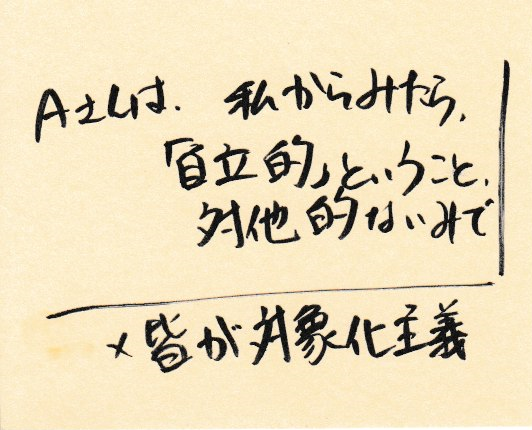 Aさんは、私からみたら、
「自立的」ということ、
対他的ないみで
×皆が対象化主義